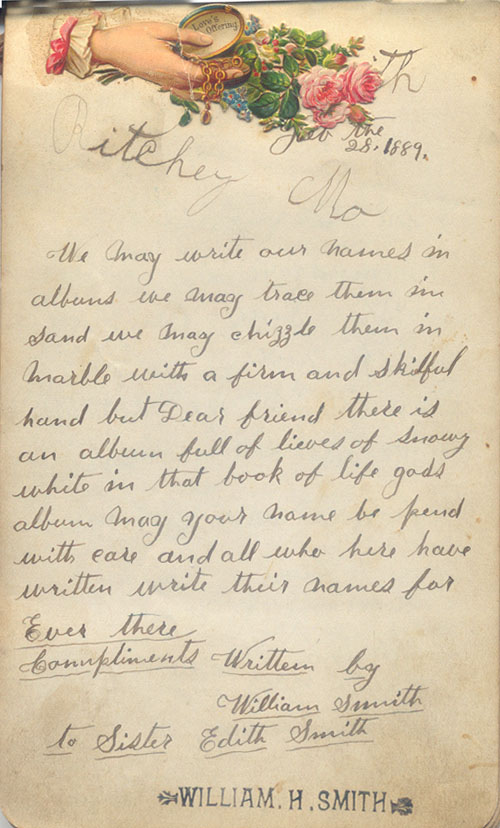 Love's
Offering
ith
Feb the
28. 1889.
Ritchey
Mo
We may write our names in
albums we may trace them in
sand we may chizzle them in
marble with a firm and skilful
hand but Dear friend there is
an album full of lieves of snowy
white in that book of life gods
album may your name be pend
with care and all who here have
written write their names for
Ever there
Compliments Written by
William Smith
to Sister Edith Smith
WILLIAM. H. SMITH